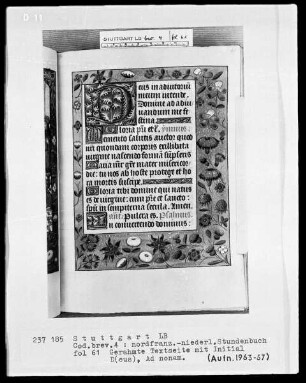 D 11
STUTTGART LB
eus in adiutorium
meum intende.
Domine ad adiu
uandum me fe
stina
loria pri et f. ymnus.
emento salutis auctor quod
nostri quondam corporis ex illibata
virgine nascendo formã sumpseris
aria mr grē mater misericor
die: tu nos ab hoste protege et ho
ra mortis suscipe.
loria tibi domine qui natus
es de virgine: cum pre et sancto
spū in sempiterna secula. Amen
ant. Pulcra es. Psalmus
n convertendo dominus
237 185 Stuttgart LB
Cod.brev.4 : nordfranz.-niederl.Stundenbuch
fol 61 Gerahmte Textseite mit Initial
D(eus), Ad nonam. (Aufn.1963-67)